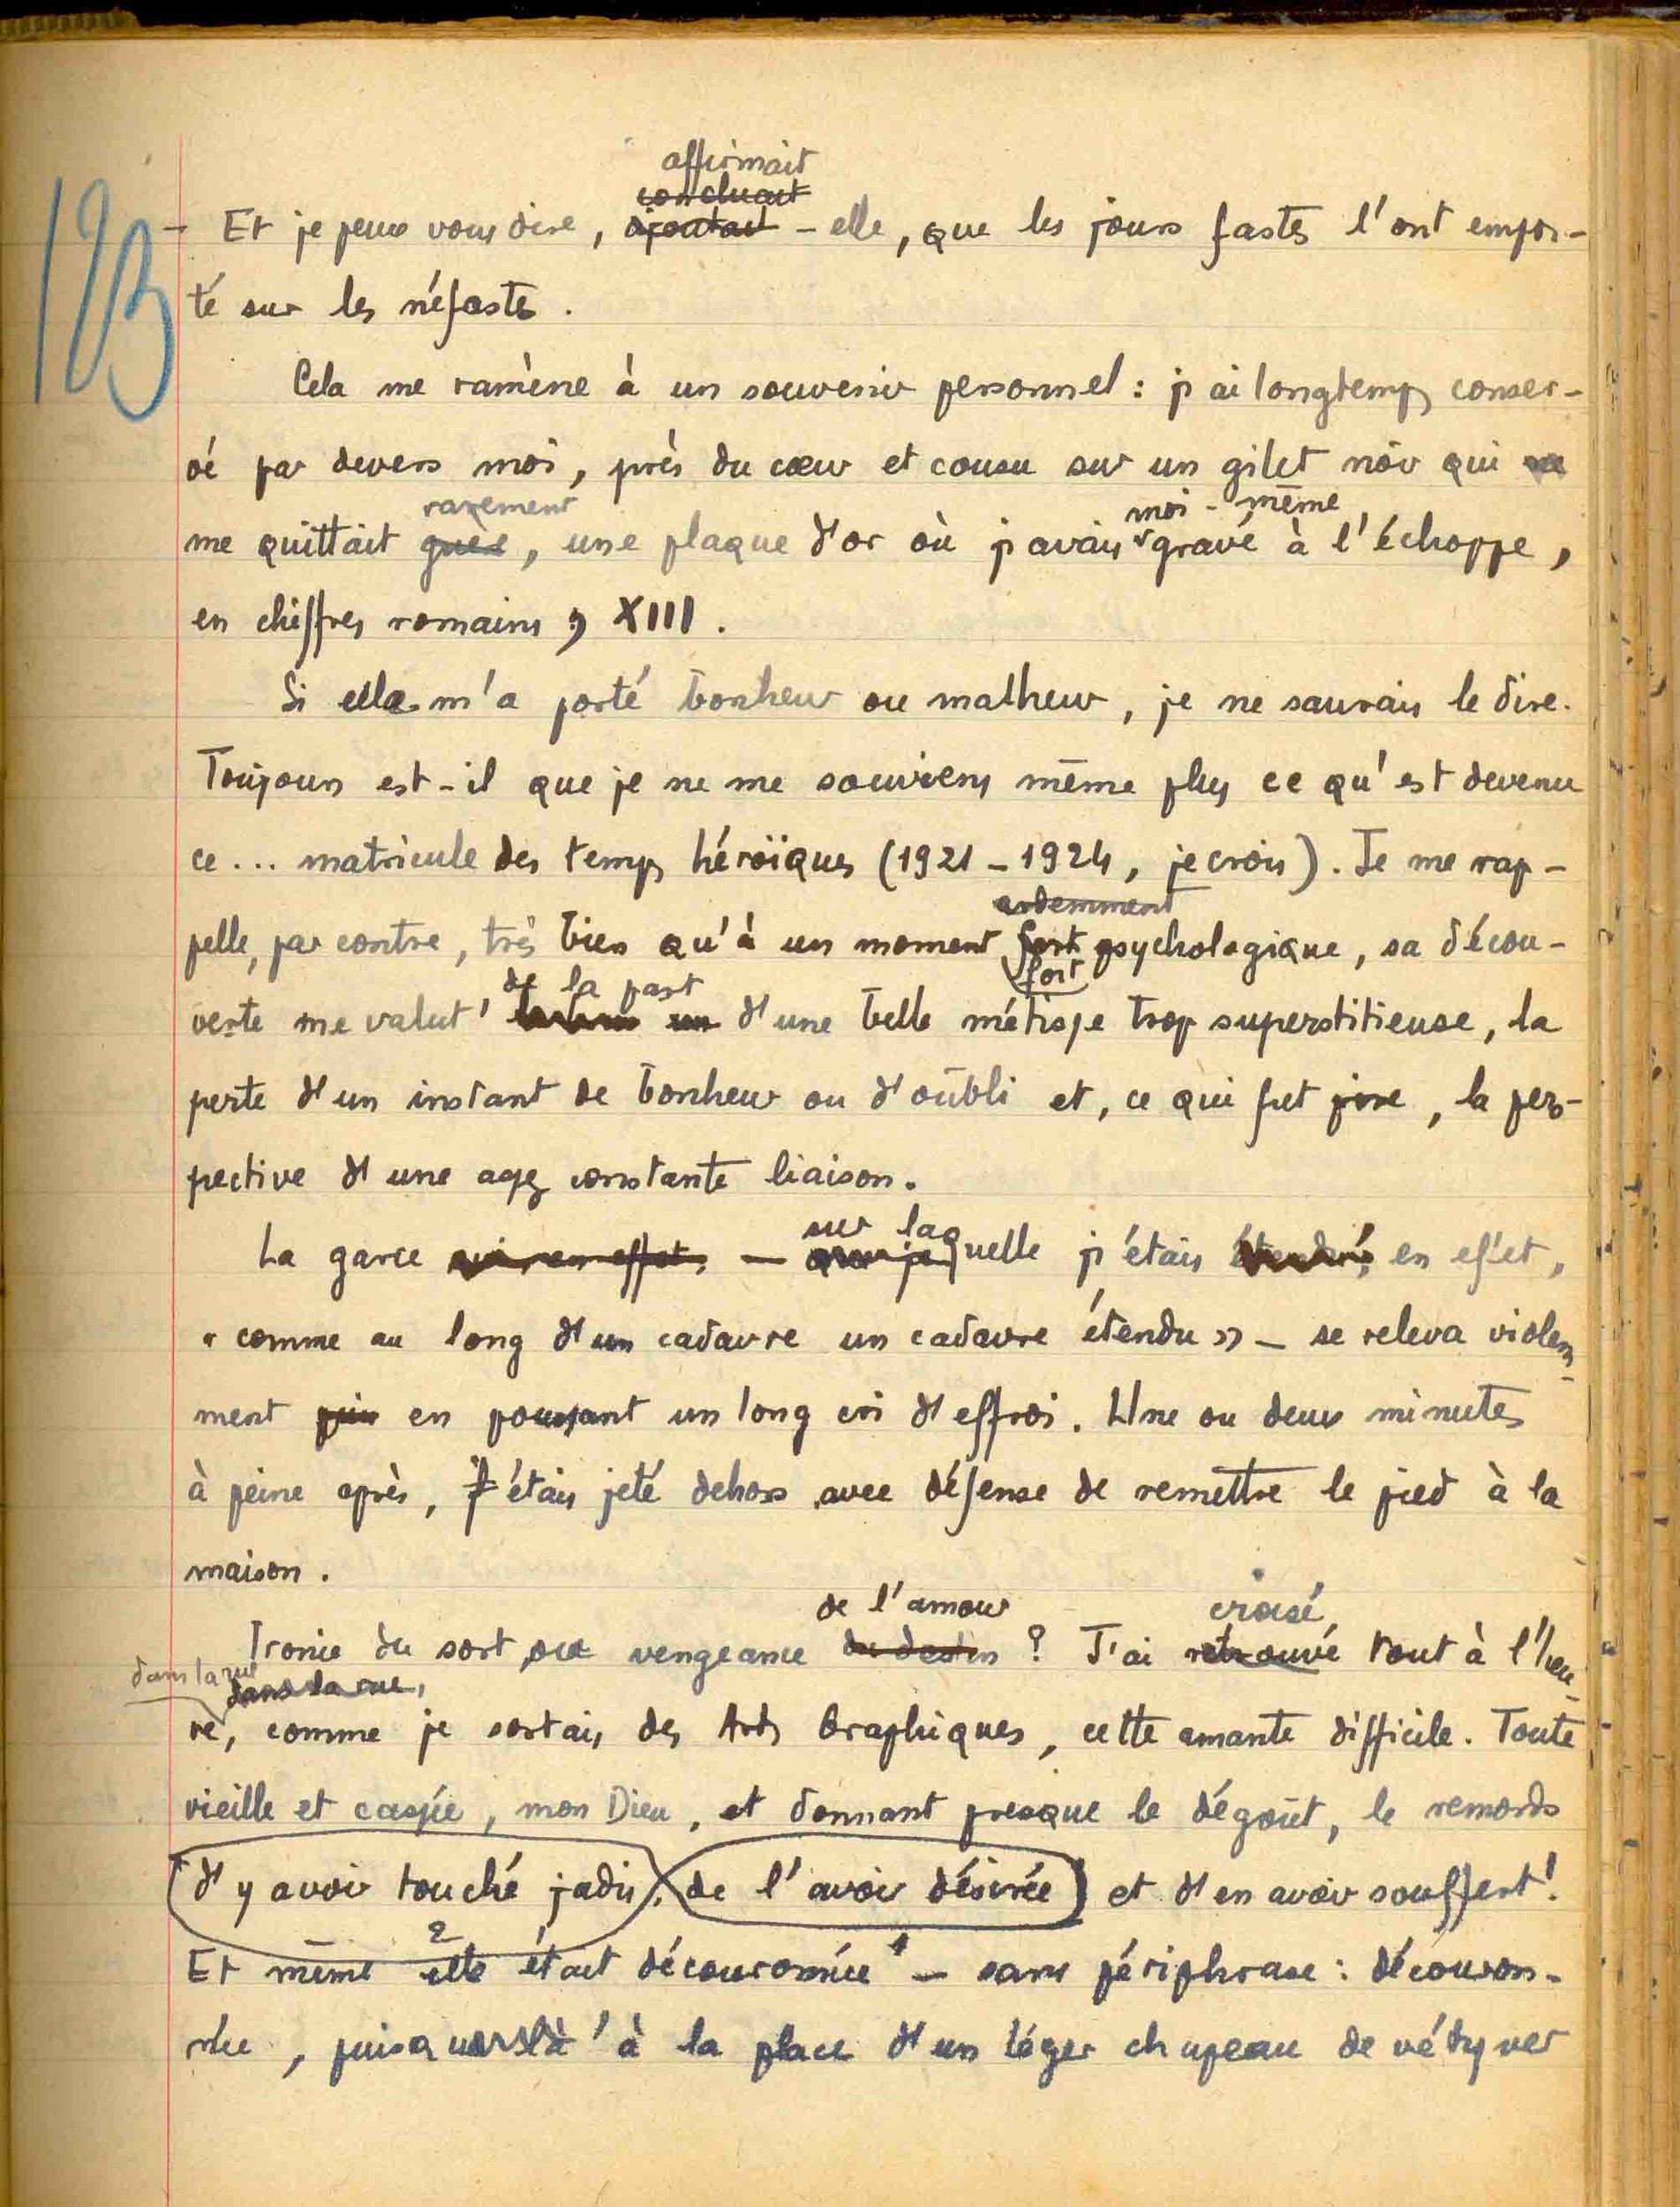 123
affirmait
concluait
- Et je peux vous dire, ajoutait - elle, que les jours fastes l'ont empor-
té sur les néfastes.
Cela me ramène à un souvenir personnel : j'ai longtemps conser-
vé par devers moi, près du cœur et cousu sur un gilet noir qui ne
rarement
moi-même
me quittait guère, une plaque d'or où j'avais gravé à l'échoppe,
en chiffres romains, XIII.
Si elle m'a porté bonheur ou malheur, je ne saurais le dire.
Toujours est-il que je ne me souviens même plus ce qu'est devenu
ce... matricule des temps héroïques (1921 - 1924, je crois). Je me rap-
ardemment
pelle, par contre, très bien qu'à un moment fort psychologique, sa décou-
fort
de la part
verte me valut un d'une belle métisse trop superstitieuse, la
perte d'un instant de bonheur ou d'oubli et, ce qui fut pire, la pers-
pective d'une assez constante liaison.
sur laq
La garce qui, en effet, - que je quelle j'étais étendu, en effet,
« comme au long d'un cadavre un cadavre étendu » - se releva violem-
ment puis en poussant un long cri d'effroi. Une ou deux minutes
à peine après, j'étais jeté dehors avec défense de remettre le pied à la
maison.
de l'amour
croisé
Ironie du sort, ou vengeance du destin ? J'ai retrouvé tout à l'heu-
dans la rue
dans la rue,
re, comme je sortais des Arts Graphiques, cette amante difficile. Toute
vieille et cassée, mon Dieu, et donnant presque le dégoût, le remords
d'y avoir touché jadis, de l'avoir désirée et d'en avoir souffert !
2
1
Et même elle était découronnée - sans périphrase : découron-
née, puisque à la place d'un léger chapeau de vétyver